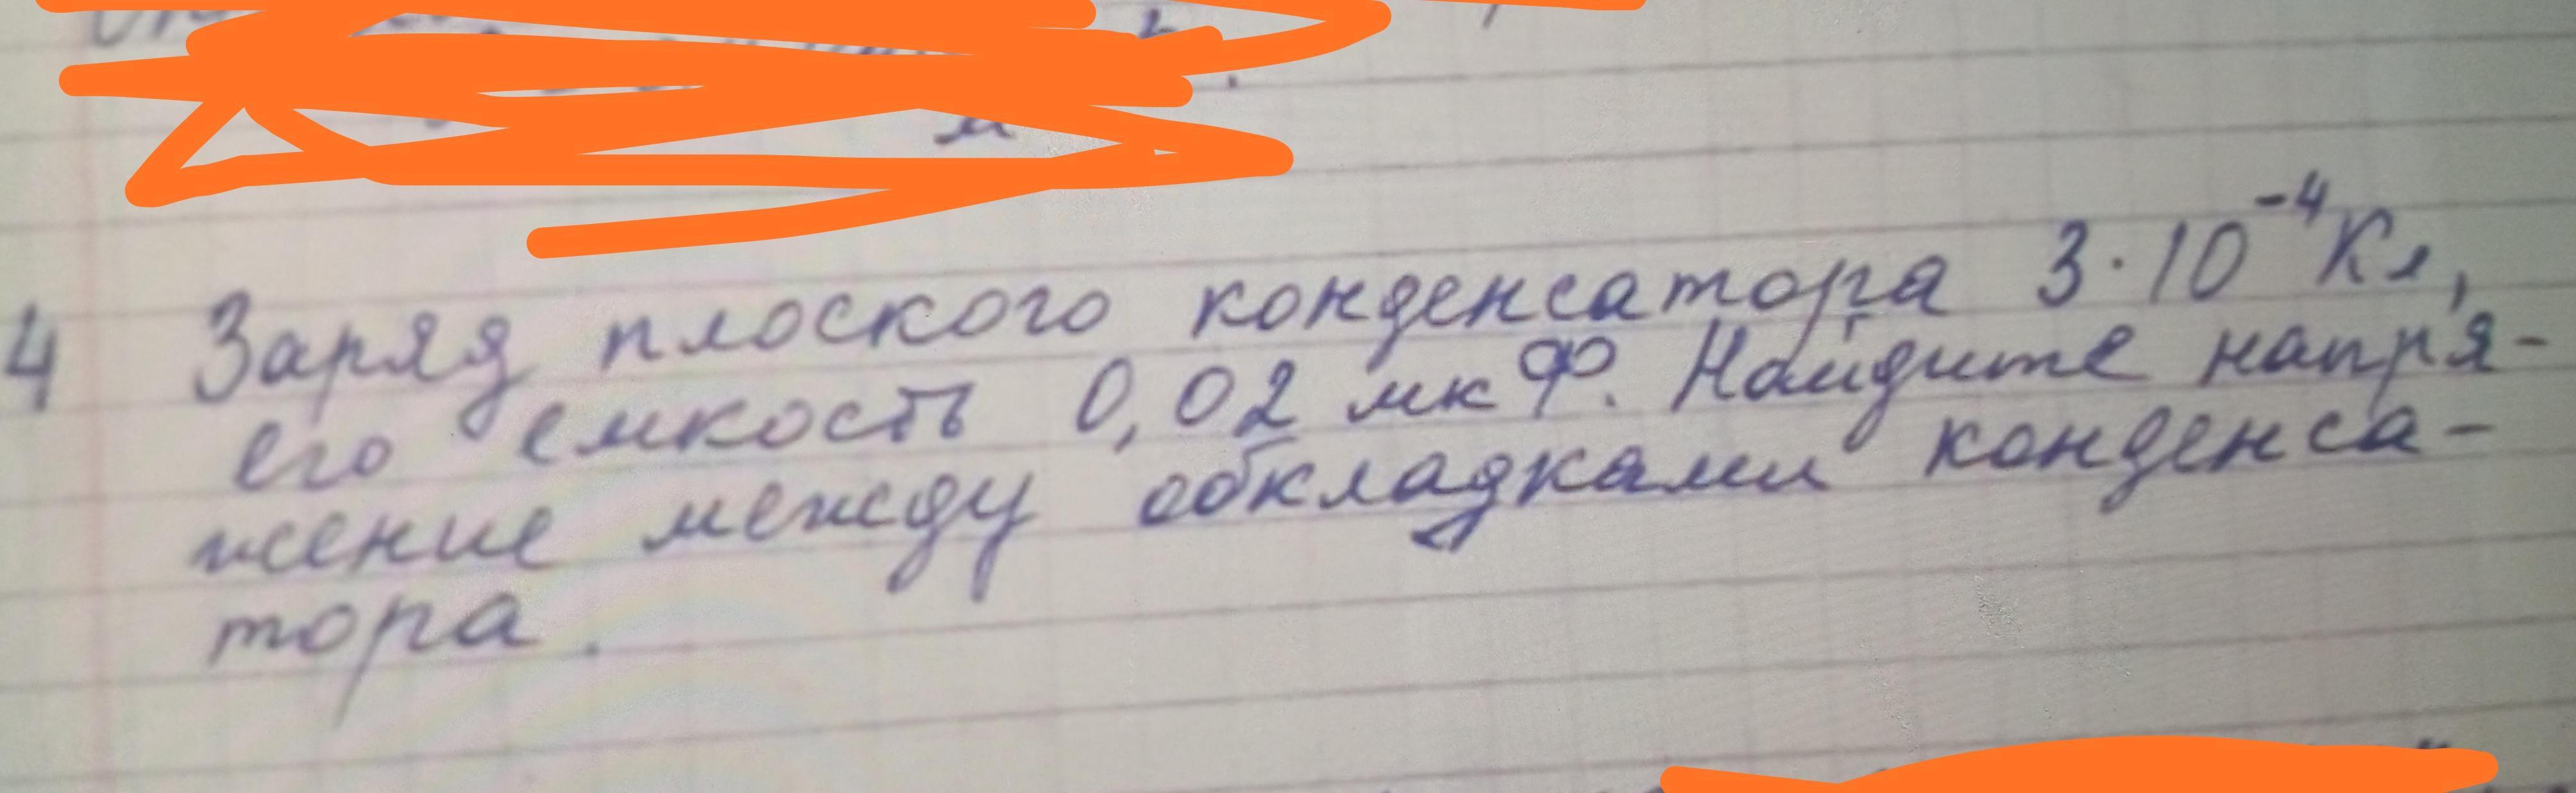 4 Заряд плоского конденсатора 3·10⁻⁴ Кл,
его емкость 0,02 мкФ. Найдите напря-
жение между обкладками конденса-
тора.